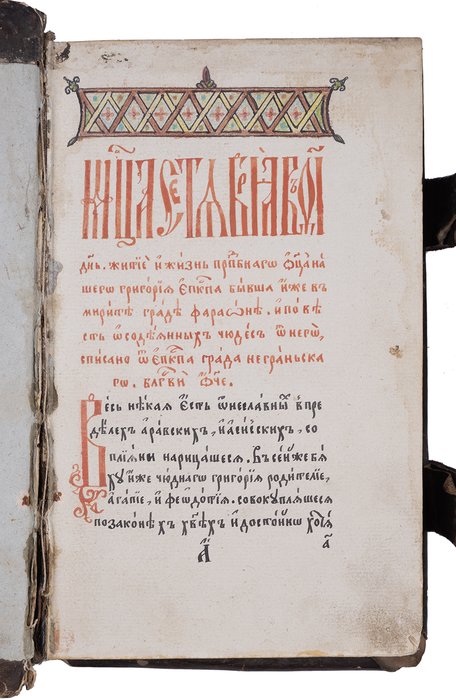 Мцⷭ҇а сентѧврїа въ ѳі
днь. житїе и҆ жизнь прпⷣбнагѡ ѻ҆ц҃а на
шегѡ григорїѧ е҆пⷭ҇кпа бывша и҆же въ
мирите градѣ фараѡнѣ. и҆ повѣ
сть ѡ҆ содеѧнныхъ чюдесъ ѿ негѡ,
списано ѿ е҆пⷭ҇кпа града неграньска
гѡ. блгⷭ҇ви ѻ҆ч҃е.
Весь нѣкаѧ е҆сть ѡ҆неславныⷯ в пре
дѣлехъ а҆равскихъ, и҆ а҆леѵ҆скихъ, со
плїѧни нарица́шесѧ. Въ сей у҆же бѧ
ху и҆же чюднагѡ григорїѧ родителїе,
А҆гапїе, и҆ феѡдотїѧ. совокуплѧшесѧ
по законѣ хъ хвѣхъ и҆ достойнѡ хотѧ
а҃